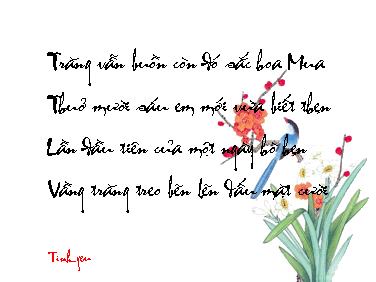 Trăng vẫn buồn còn đó sắc hoa Mua
Thuở mười sáu em mới vừa biết thẹn
Lần đầu tiên của một ngày hò hẹn
Vầng trăng treo bẽn lẽn dấu mặt cười
Tinh yeu